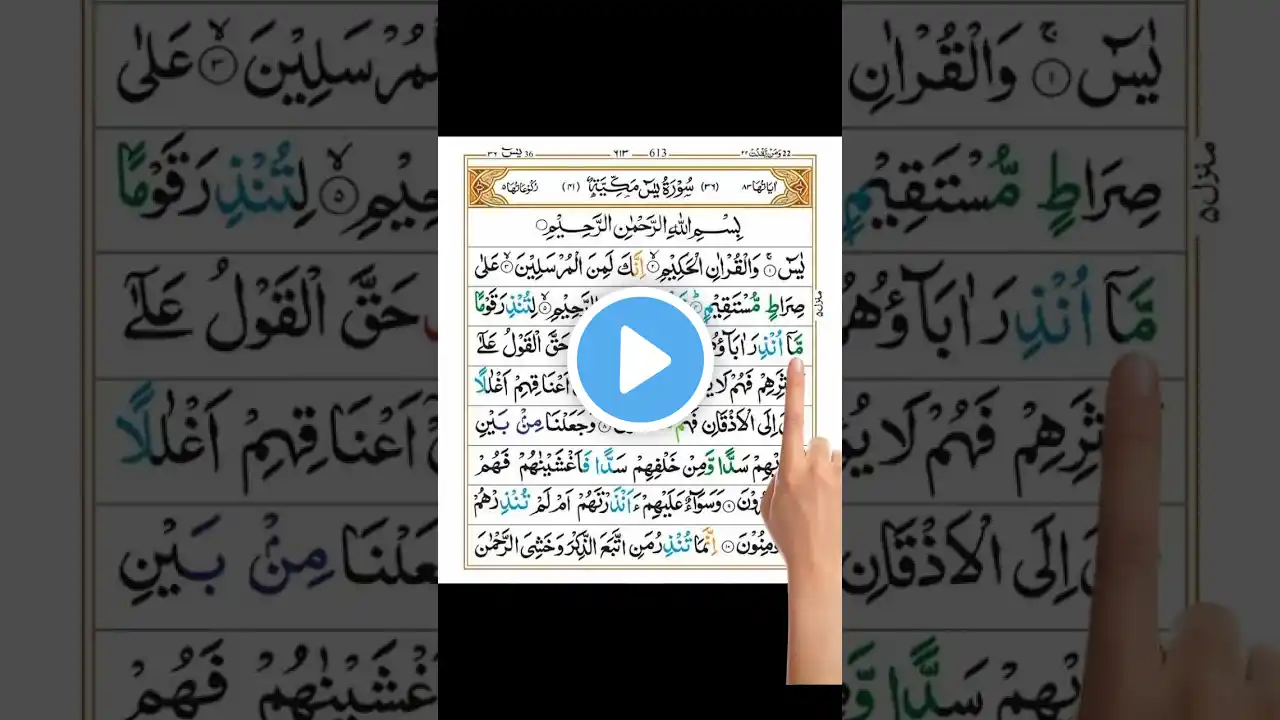 22 وَمَنْ يَّقْنُتْ ٢٢ 613 ٦١٣ 36 يٰسٓ ٣٦
اٰيَاتُهَا ٨٣ (٣٦) سُوْرَةُ يٰسٓ مَكِّيَّةٌ (٤١) رُكُوْعَاتُهَا ٥
بِسْمِ اللّٰهِ الرَّحْمٰنِ الرَّحِيْمِ
يٰسٓ ۚ ١ وَالْقُرْاٰنِ الْحَكِيْمِ ۙ ٢ اِنَّكَ لَمِنَ الْمُرْسَلِيْنَ ۙ ٣ عَلٰى
صِرَاطٍ مُّسْتَقِيْمٍ الرَّحِيْمِ ۙ ٥ لِتُنْذِرَ قَوْمًا
مَّاۤ اُنْذِرَ اٰبَآؤُهُ حَقَّ الْقَوْلُ عَلٰۤى
ثَرِهِمْ فَهُمْ لَا اَعْنَاقِهِمْ اَغْلٰلًا
اِلَى الْاَذْقَانِ فَهُمْ ٨ وَجَعَلْنَا مِنْۢ بَيْنِ
سَدًّا وَّمِنْ خَلْفِهِمْ سَدًّا فَاَغْشَيْنٰهُمْ فَهُمْ
٩ وَسَوَآءٌ عَلَيْهِمْ ءَاَنْذَرْتَهُمْ اَمْ لَمْ تُنْذِرْهُمْ
١٠ اِنَّمَا تُنْذِرُ مَنِ اتَّبَعَ الذِّكْرَ وَخَشِيَ الرَّحْمٰنَ
منزل ٥